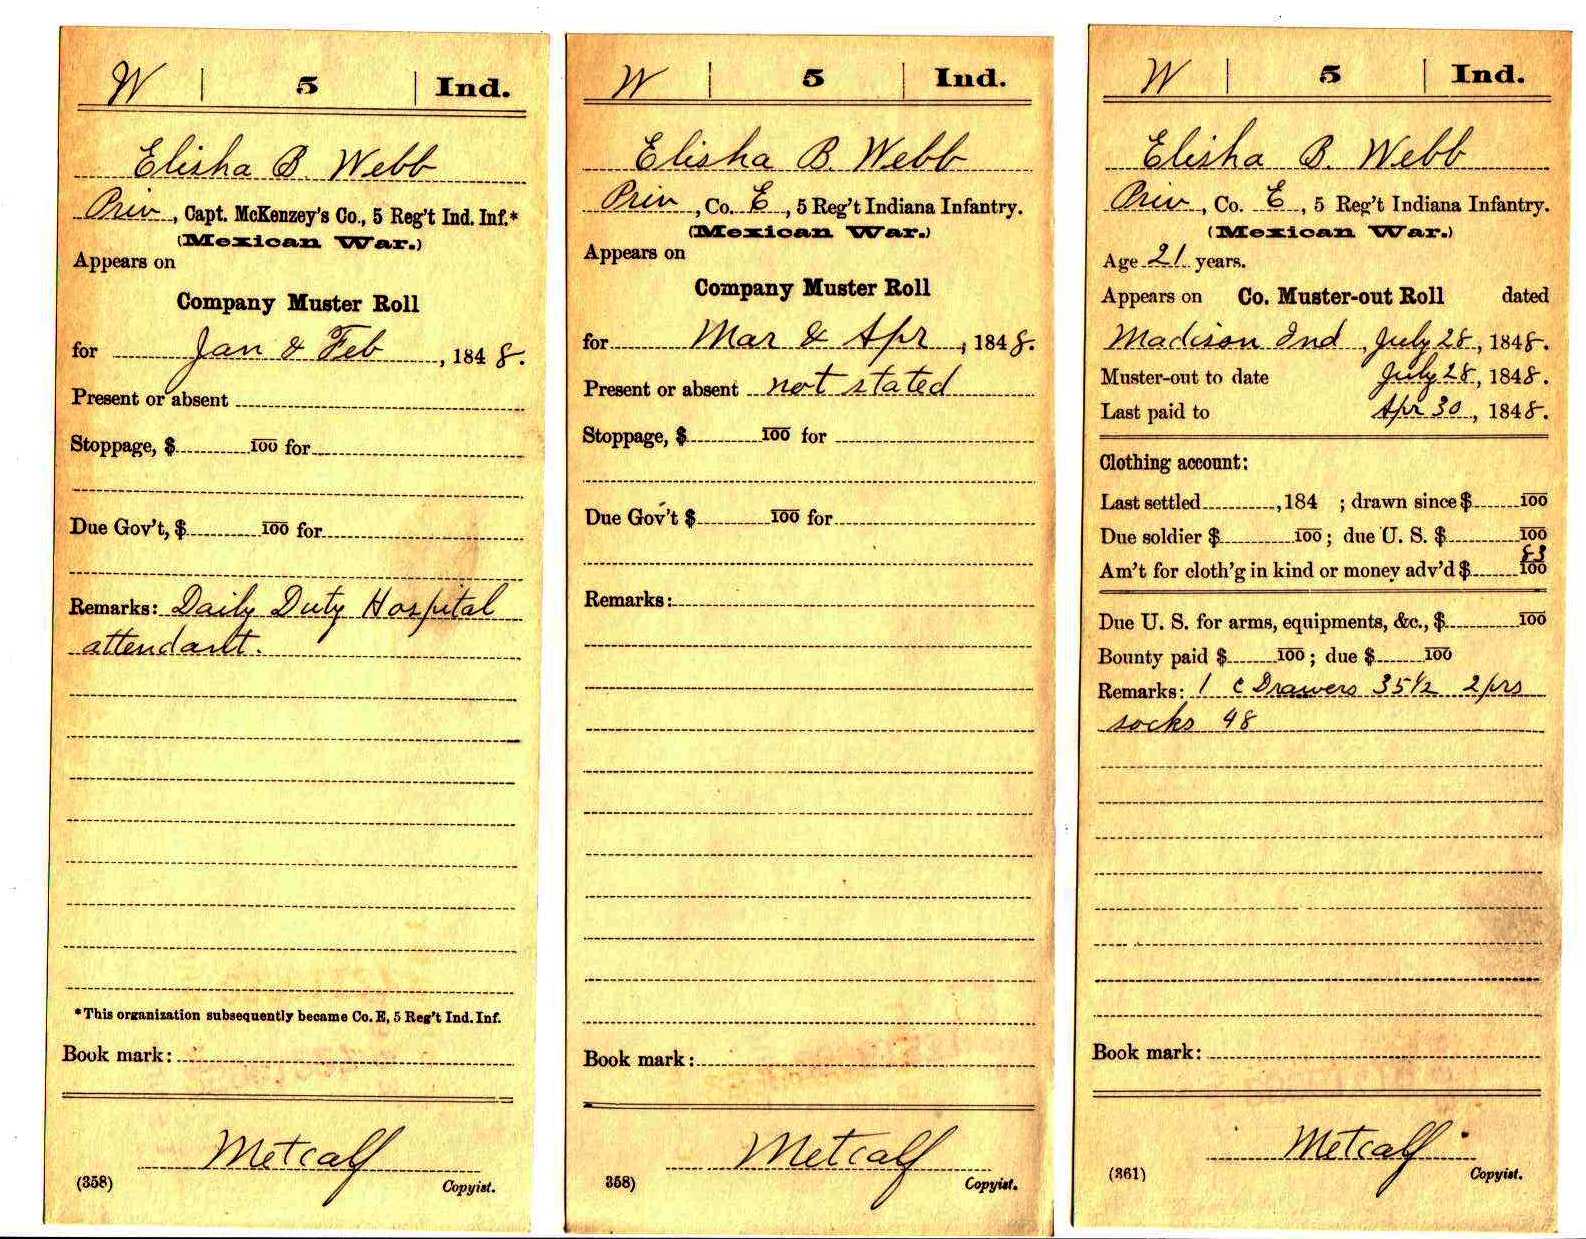 W | 5 | Ind.
Elisha B Webb
Priv, Capt. McKenzey's Co., 5 Reg't Ind. Inf.*
(Mexican War.)
Appears on
Company Muster Roll
for Jan & Feb, 1848.
Present or absent
Stoppage, $ 100 for
Due Gov't, $ 100 for
Remarks: Daily Duty Hospital
attendant.
*This organization subsequently became Co. E, 5 Reg't Ind. Inf.
Book mark:
Metcalf
(358) Copyist.
W | 5 | Ind.
Elisha B. Webb
Priv, Co. E, 5 Reg't Indiana Infantry.
(Mexican War.)
Appears on
Company Muster Roll
for Mar & Apr, 1848.
Present or absent not stated
Stoppage, $ 100 for
Due Gov't $ 100 for
Remarks:
Book mark:
Metcalf
358) Copyist.
W | 5 | Ind.
Elisha B. Webb
Priv, Co. E, 5 Reg't Indiana Infantry.
(Mexican War.)
Age 21 years.
Appears on Co. Muster-out Roll dated
Madison Ind, July 28, 1848.
Muster-out to date July 28, 1848.
Last paid to Apr 30, 1848.
Clothing account:
Last settled , 184 ; drawn since $ 100
Due soldier $ 100; due U. S. $ 100
Am't for cloth'g in kind or money adv'd $ 83/100
Due U. S. for arms, equipments, &c., $ 100
Bounty paid $ 100; due $ 100
Remarks: 1 Drawers 35½ 2 prs
socks 48
Book mark:
Metcalf
(361) Copyist.